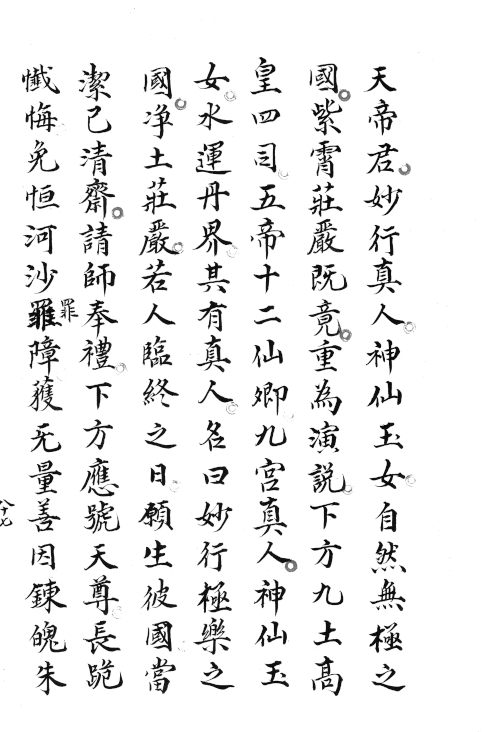 天帝君妙行真人神仙玉女自然無極之
國紫霄莊嚴既竟重為演説下方九土高
皇四司五帝十二仙卿九宮真人神仙玉
女水運丹界其有真人名曰妙行極樂之
國净土莊嚴若人臨終之日願生彼國當
潔己清齋請師奉禮下方應號天尊長跪
懺悔免恒河沙罪障獲无量善因鍊魄朱
罪
八十七